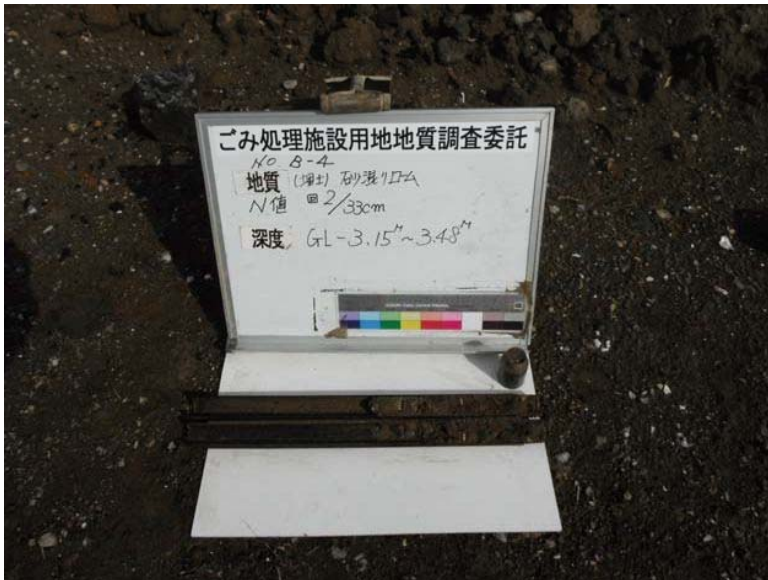 ごみ処理施設用地地質調査委託
NO B-4
地質 (埋土) 砂混りローム
N値 回 2/33cm
深度 GL-3.15M~3.48M